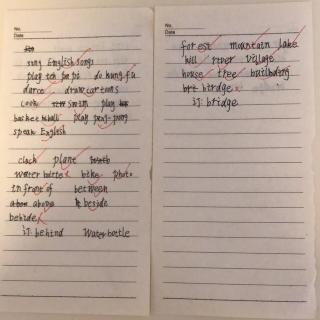 No.
Date
sing English songs
play the pi pa do kung fu
dance draw cartoons
cook swim play
basketball play ping-pong
speak English
clock plant
water bottle bike photo
in front of between
above beside
behide
订: behind Water bottle
No.
Date
forest mountain lake
hill river village
house tree building
birdge
订: bridge